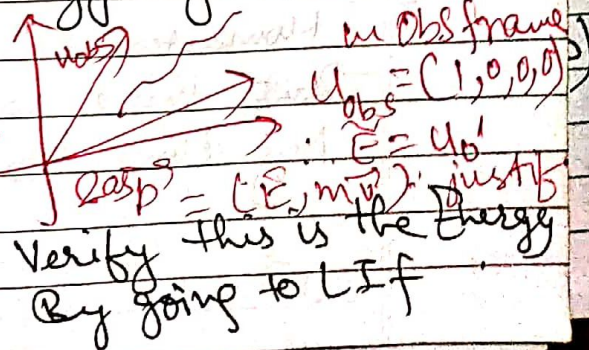 in obs frame
u obs
u obs = (1,0,0,0)
∴ E = u0'
as p = (E, mv). justify
Verify this is the Energy
By going to LIf